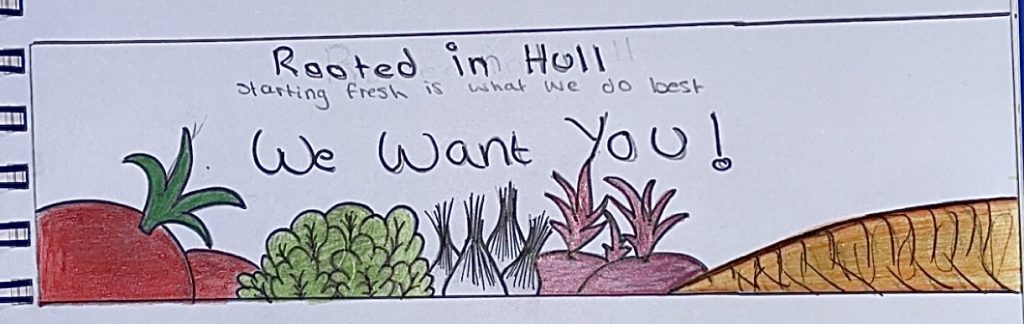 Rooted in Hull
Starting fresh is what we do best
We Want You!